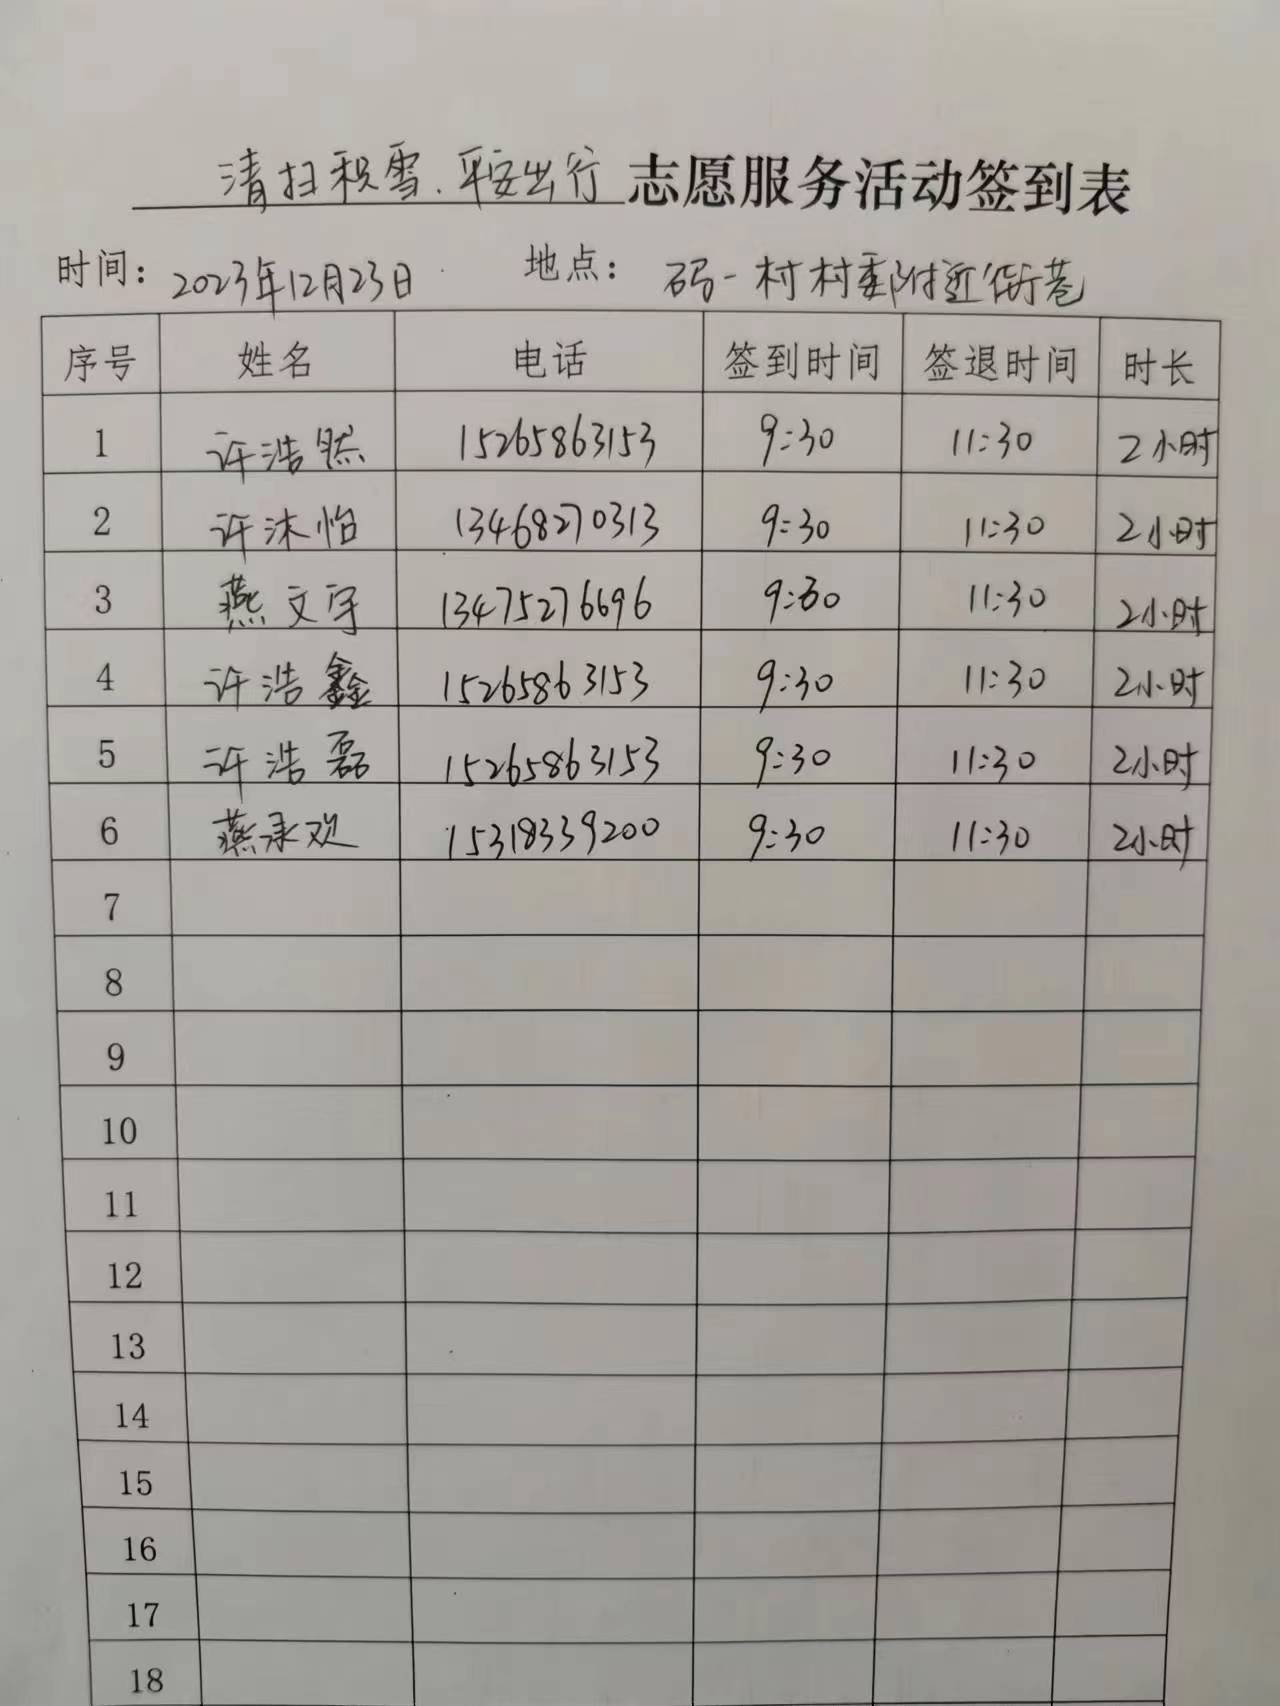 清扫积雪.平安出行志愿服务活动签到表
时间：2023年12月23日 地点：码一村村委附近街巷
序号 姓名 电话 签到时间 签退时间 时长
1 许浩然 15265863153 9:30 11:30 2小时
2 许沐怡 13468270313 9:30 11:30 2小时
3 燕文宇 13475276696 9:30 11:30 2小时
4 许浩鑫 15265863153 9:30 11:30 2小时
5 许浩磊 15265863153 9:30 11:30 2小时
6 燕承欢 15318339200 9:30 11:30 2小时
7
8
9
10
11
12
13
14
15
16
17
18